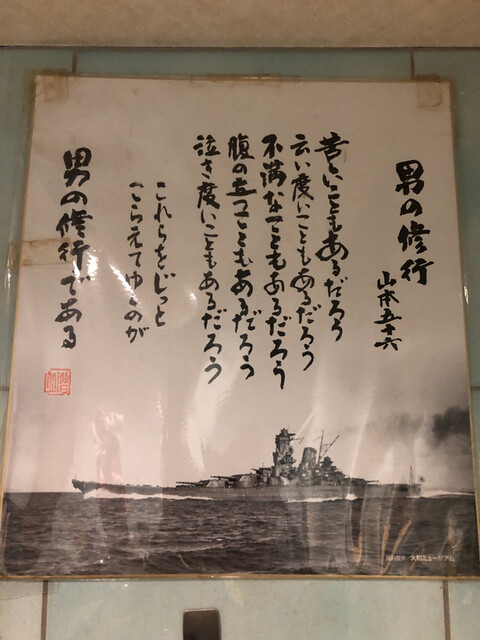 男の修行
山本五十六
苦しいこともあるだろう
云い度いこともあるだろう
不満なこともあるだろう
腹の立つこともあるだろう
泣き度いこともあるだろう
これらをじっと
こらえてゆくのが
男の修行である
資料提供 大和ミュージアム